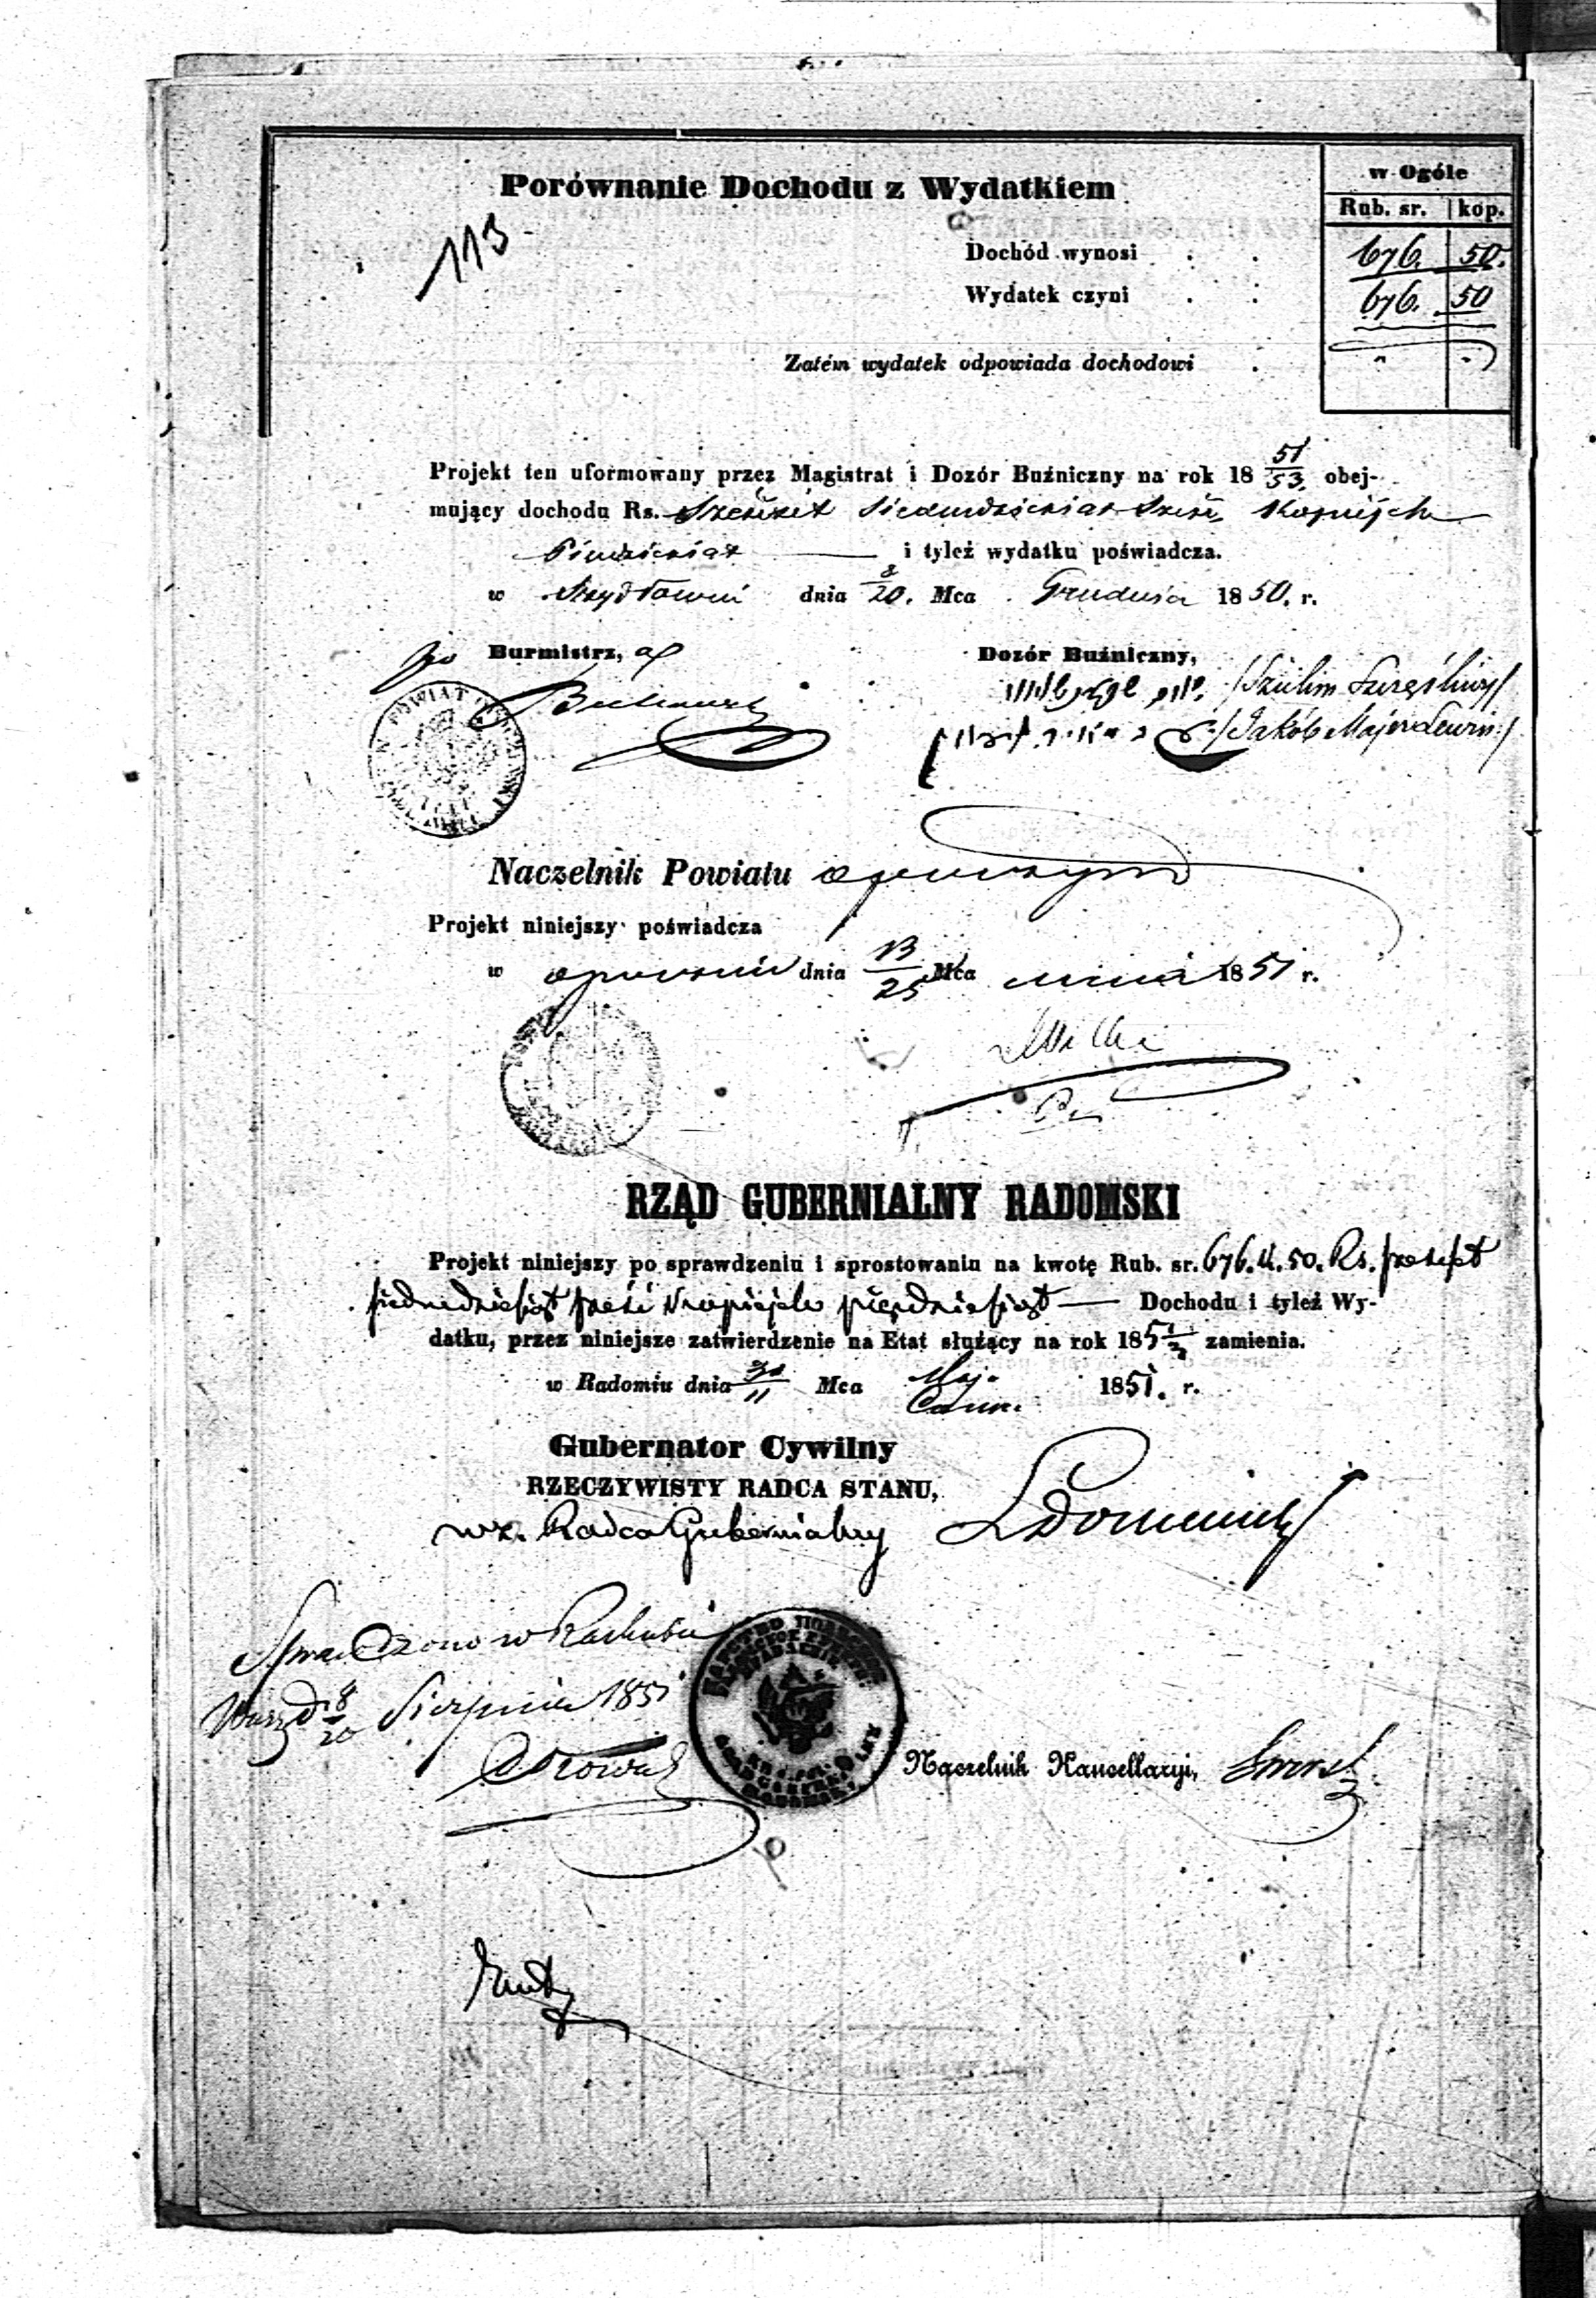 Porównanie Dochodu z Wydatkiem
w Ogóle
Rub. sr. kop.
113
Dochód wynosi . . 676. 50.
Wydatek czyni . . 676. 50
Zatém wydatek odpowiada dochodowi .
Projekt ten uformowany przez Magistrat i Dozór Buźniczny na rok 18 51/53 obej-
mujący dochodu Rs. Sześćset Siedmdziesiąt Sześć Kopiejek
Piędziesiąt i tyleż wydatku poświadcza.
w Szydłowcu dnia 8/20. Mca Grudnia 1850. r.
Burmistrz,
Dozór Buźniczny,
/Szulim Szczęśliwy/
/Jakób Majer Lewin/
POWIAT
Naczelnik Powiatu
Projekt niniejszy poświadcza
w Opocznie dnia 13/25 Mca 1851 r.
RZĄD GUBERNIALNY RADOMSKI
Projekt niniejszy po sprawdzeniu i sprostowaniu na kwotę Rub. sr. 676. k. 50. Rs. sześćset
siedmdziesiąt sześć kopiejek pięćdziesiąt — Dochodu i tyleż Wy-
datku, przez niniejsze zatwierdzenie na Etat służący na rok 185 1/3 zamienia.
w Radomiu dnia 30/11 Mca Maj. Czerw. 1851. r.
Gubernator Cywilny
RZECZYWISTY RADCA STANU,
wz. Radca Gubernialny
Sprawdzono w Rachubie
d 8/20 Sierpnia 1851
Naczelnik Kancellaryi,